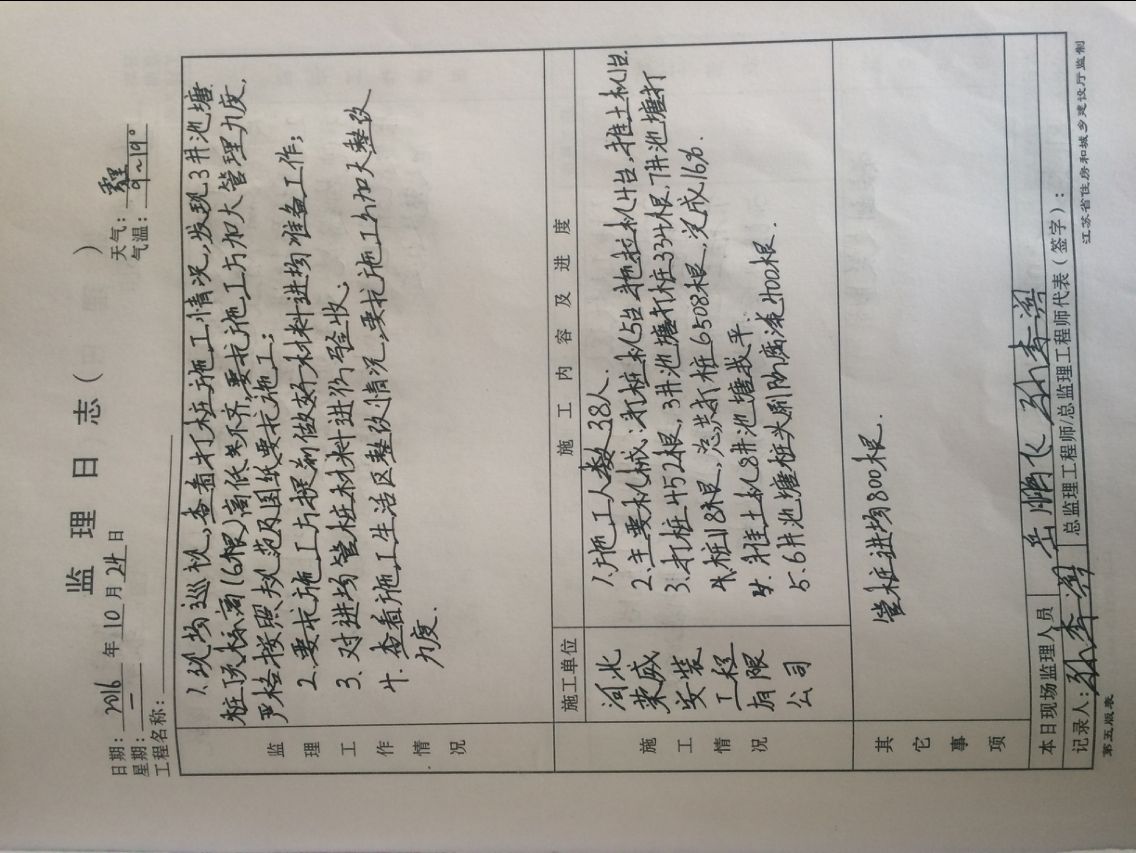 监 理 日 志（ ）
日期：2016 年 10 月 24 日
星期：一
天气：
气温：9~19°
工程名称：
监理工作情况
1.现场巡视，查看打桩施工情况，发现3#池塘
桩顶标高（6根）高低不齐，要求施工方加大管理力度，
严格按照规范及图纸要求施工；
2.要求施工方提前做好材料进场准备工作；
3.对进场管桩材料进行验收；
4.查看施工生活区整改情况，要求施工方加大整改
力度.
施工情况
施工单位
施 工 内 容 及 进 度
河北
荣威
安装
工程
有限
公司
1.施工人数38人.
2.主要机械：打桩机5台 拖拉机4台，推土机1台.
3.打桩452根，3#池塘打桩334根，7#池塘打
桩118根，总共打桩6508根，完成16%
4.推土机8#池塘找平
5.6#池塘桩头刷防腐漆400根.
其它事项
管桩进场800根.
本日现场监理人员
岳鹏飞 孙春梁
记录人：孙春梁
总监理工程师/总监理工程师代表（签字）：
第五版表
江苏省住房和城乡建设厅监制